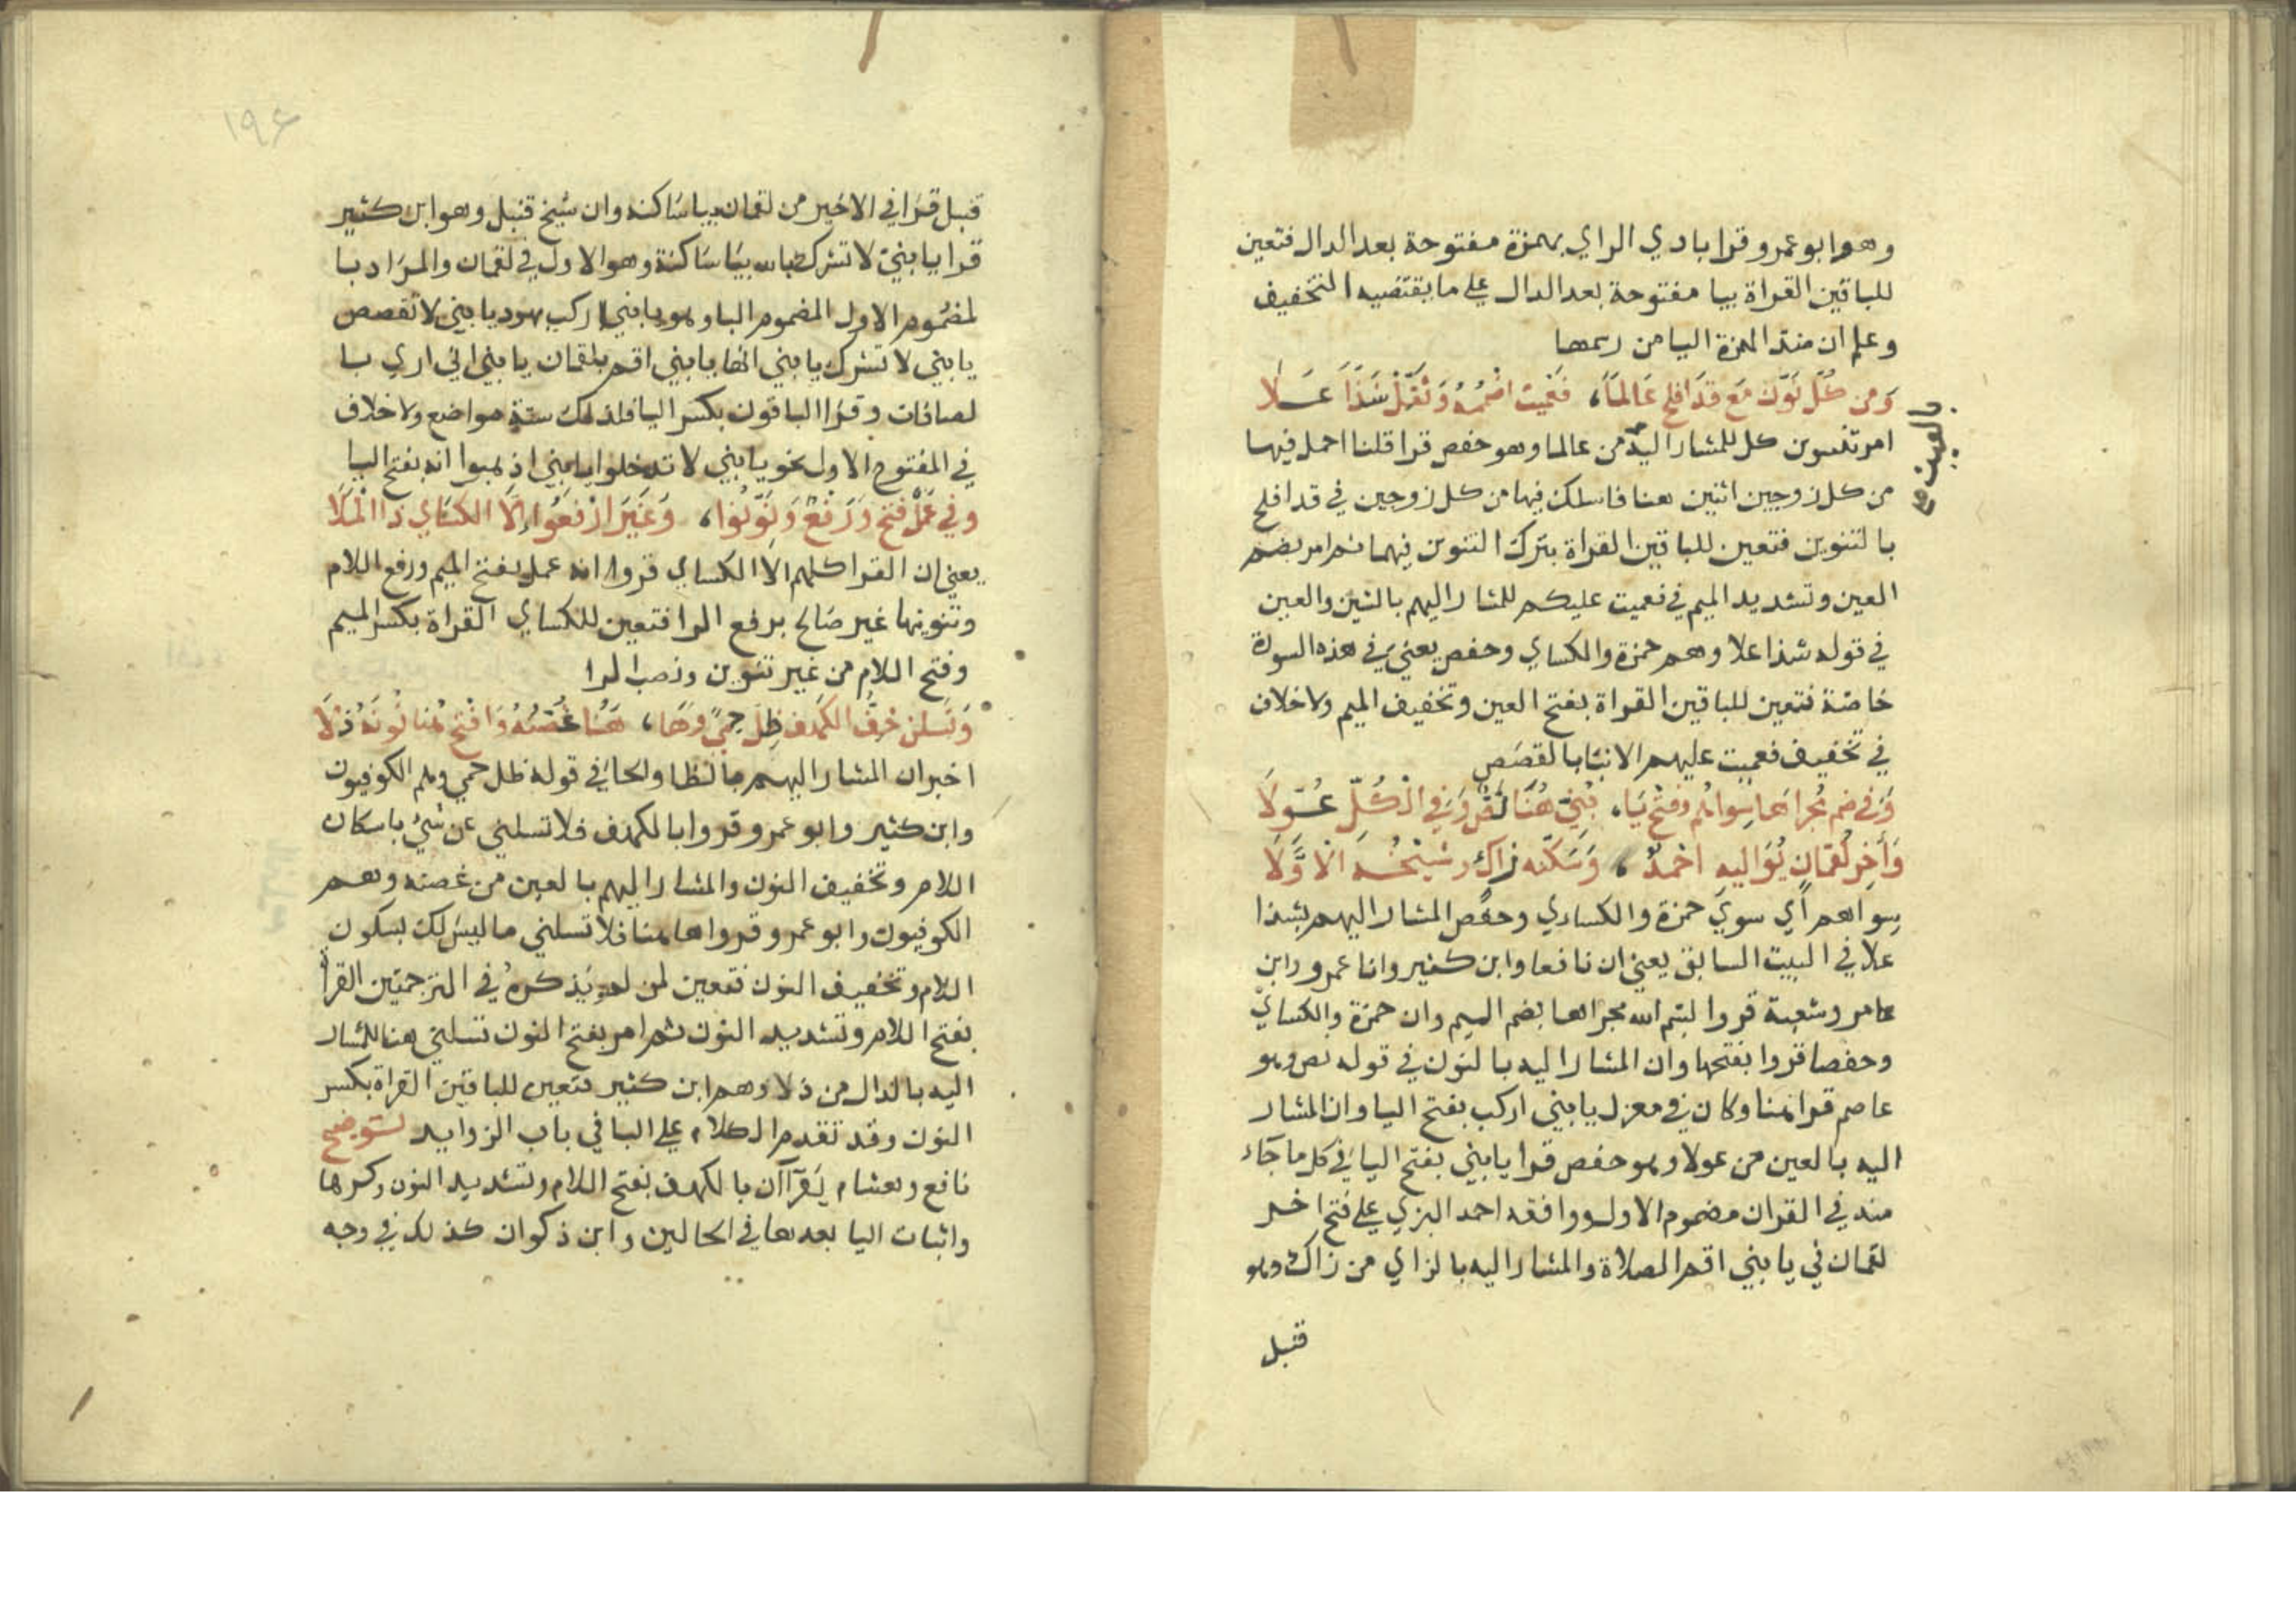 وهو ابو عمرو قرا بادي الراي بهمزة مفتوحة بعد الدال فتعين
للباقين القراة بيا مفتوحة بعد الدال علي ما يقتضيه التخفيف
وعلم ان ضد الهمزة اليا من رسمها
وَمن كُلِّ نَوِّن مَعَ قدَافلح عَالماً، فَعُميَت اضْمُمْهُ وَثَقِّلْ شَذَاً عَلَا
بالعين صح
امر بتنوين كل للمشار اليه من عالما وهو حفص قرا قلنا احمل فيها
من كل زوجين اثنين هنا فاسلك فيها من كل زوجين في قد افلح
بالتنوين فتعين للباقين القراة بترك التنوين فيهما ثم امر بضم
العين وتشديد الميم في فعميت عليكم للمشار اليهم بالشين والعين
في قوله شذا علا وهم حمزة والكساي وحفص يعني في هذه السورة
خاصة فتعين للباقين القراة بفتح العين وتخفيف الميم ولا خلاف
في تخفيف فعميت عليهم الانبا بالقصص
وَفي ضم مُجراهَا سِواهُم وفتْح يَا، بُنَيّ هُنَا نَصٌّ وَفي الْكُلِّ عُوِّلَا
وَأخِر لُقمَانٍ يُوَاليهِ احْمدٌ، وَسَكّنه زاكٍ وشيْخُهُ الاَوَّلَا
سواهم أي سوي حمزة والكساي وحفص المشار اليهم بشذا
علا في البيت السابق يعني ان نافعا وابن كثير وابا عمرو وابن
عامر وشعبة قروا بسم الله مجراها بضم الميم وان حمزة والكساي
وحفصا قروا بفتحها وان المشار اليه بالنون في قوله نص وهو
عاصم قرا هنا وكان في معزل يا بني اركب بفتح اليا وان المشار
اليه بالعين من عولا وهو حفص قرا يا بني بفتح اليا في كل ما جآء
منه في القران مضموم الاول ووافقه احمد البزي علي فتح اخر
لقمان في يا بني اقم الصلاة والمشار اليه بالزاي من زاك وهو
قنبل
١٩٤
قنبل قرا في الاخير من لقمان بيا ساكنة وان شيخ قنبل وهو ابن كثير
قرا يا بني لا تشرك بالله بيا ساكنة وهو الاول في لقمان والمراد با
لمضموم الاول المضموم البا وهو يا بني اركب بهود يا بني لا تقصص
يا بني لا تشرك يا بني انها يا بني اقم بلقمان يا بني اني اري با
لصافات وقرا الباقون بكسر اليا فذلك ستة مواضع ولا خلاف
في المفتوح الاول نحو يا بني لا تدخلوا يا بني اذهبوا انه بفتح اليا
وفي عَمَلٌ فتحٌ وَرَفعٌ وَنَوِّنوا، وَغَيْرَ ارْفعُوا إلَّا الكسَاي ذَا الْمَلَا
يعني ان القرا كلهم الا الكساي قروا انه عمل بفتح الميم ورفع اللام
وتنوينها غير صالح برفع الرا فتعين للكساي القراة بكسر الميم
وفتح اللام من غير تنوين ونصب الرا
وَتَسلن خِفُّ الكَهفِ ظِلُّ حِميً وهَا، هُنَا غُصْنُهُ وَافْتَح هُنا نُونَهُ دَلَا
اخبر ان المشار اليهم بالظا والحا في قوله ظل حمي وهم الكوفيون
وابن كثير وابو عمرو قروا بالكهف فلا تسلني عن شيء باسكان
اللام وتخفيف النون والمشار اليهم بالعين من غصنه وهم
الكوفيون وابو عمرو قروا هاهنا فلا تسلني ما ليس لك بسكون
اللام وتخفيف النون فتعين لمن لم يذكره في الترجمتين القراة
بفتح اللام وتشديد النون ثم امر بفتح النون تسلني هنا للمشار
اليه بالدال من دلا وهم ابن كثير فتعين للباقين القراة بكسر
النون وقد تقدم الكلام علي اليا في باب الزوايد توضيح
نافع وهشام يَقرَآآن بالكهف بفتح اللام وتشديد النون وكسرها
واثبات اليا بعدها في الحالين وابن ذكوان كذلك في وجه